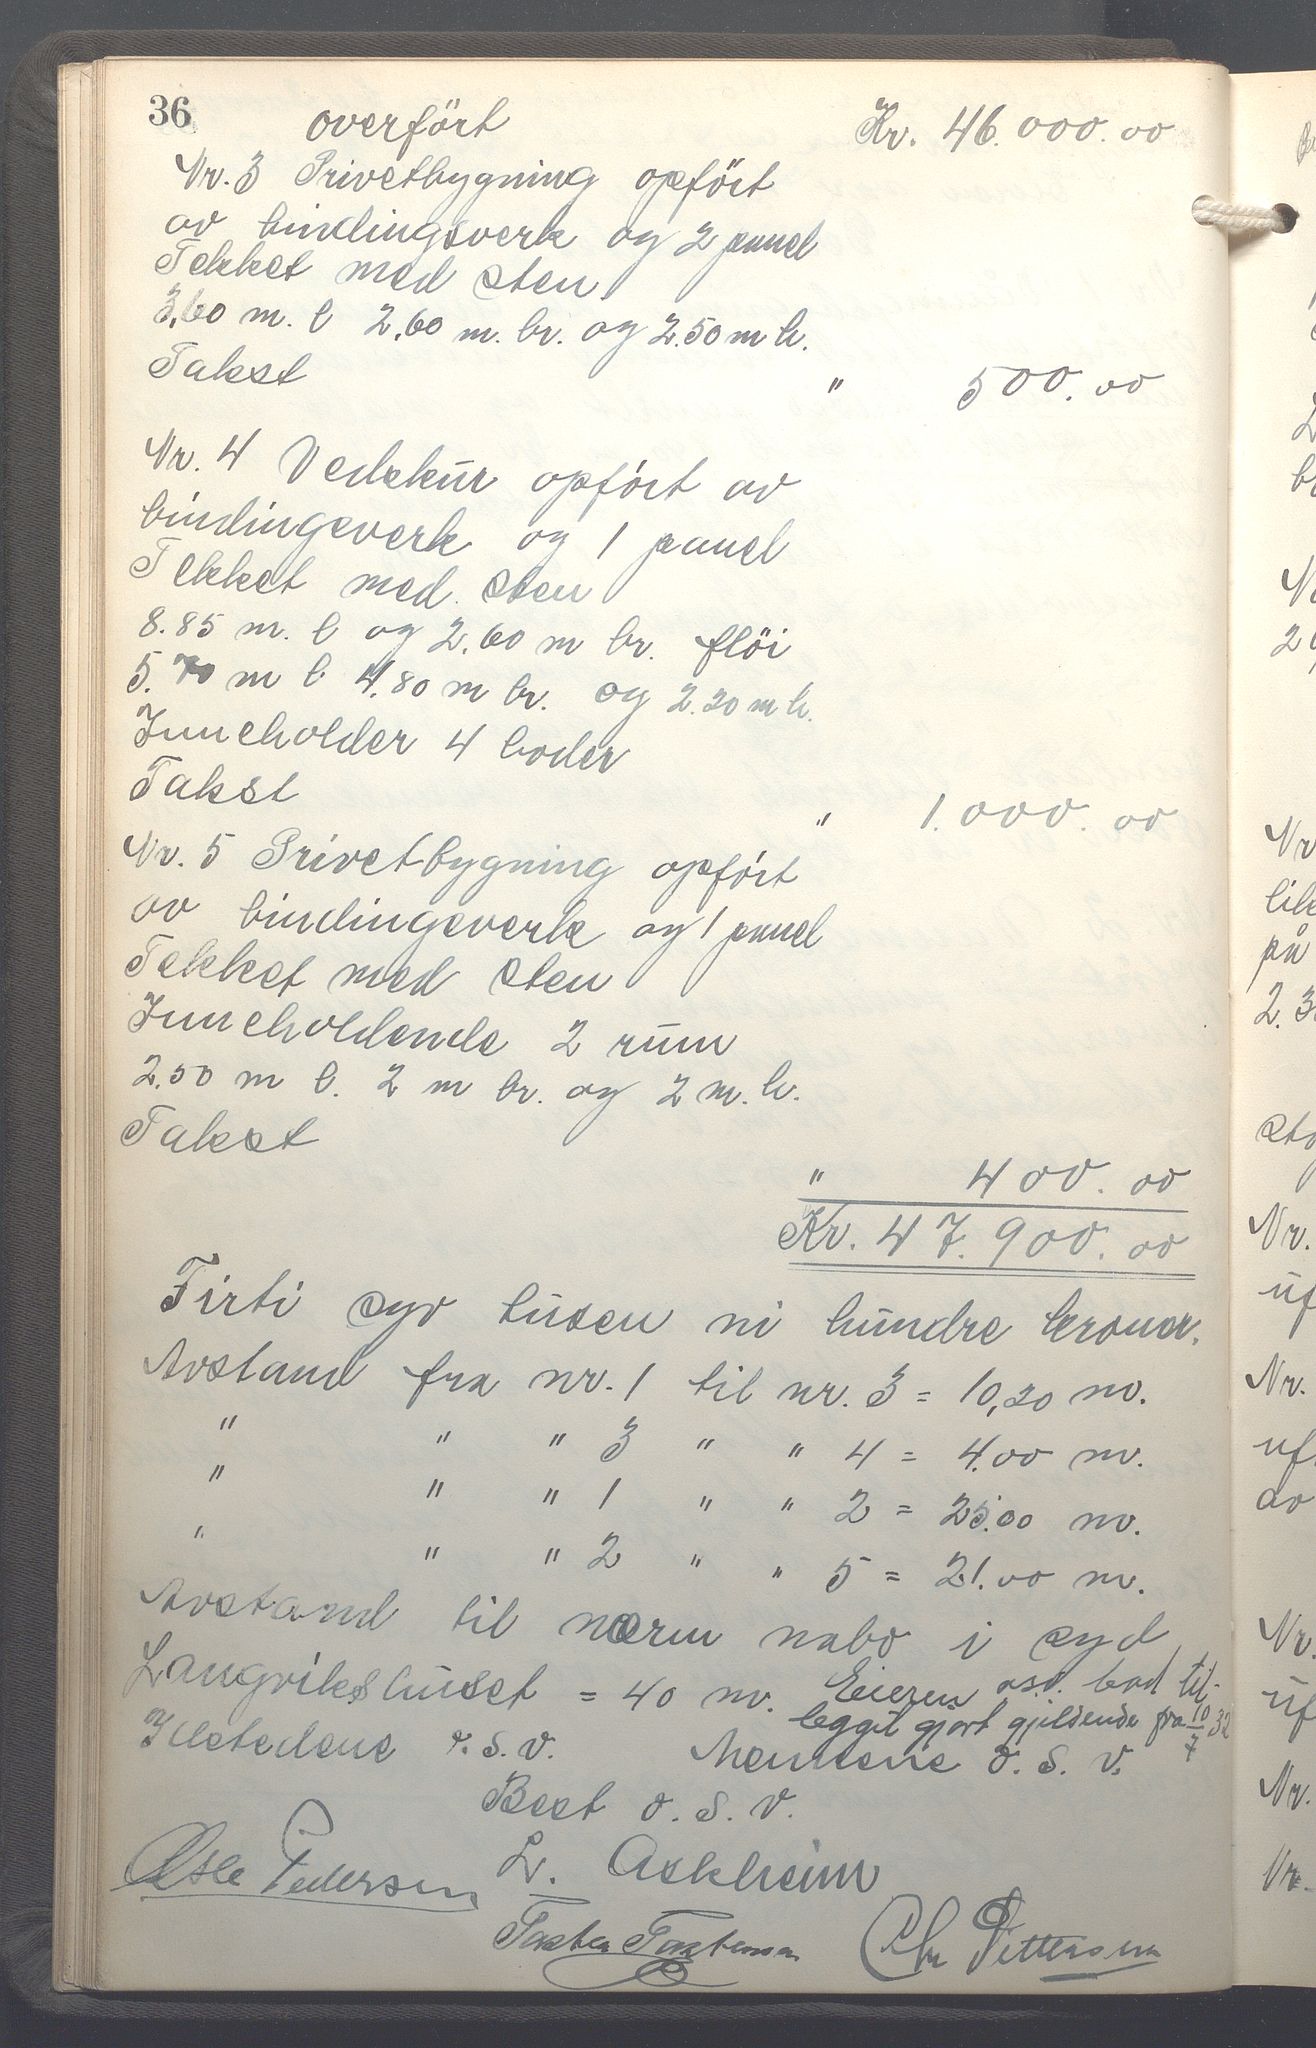 36
overført Kr. 46.000.00
Nr. 3 Privetbygning opført
av bindingsverk og 2 panel
Tekket med sten
3,60 m. l 2,60 m. br. og 2.50 m h.
Takst " 500.00
Nr. 4 Vedskur opført av
bindingsverk og 1 panel
Tekket med sten
8.85 m. l og 2,60 m br. fløi
5.70 m l 4,80 m br. og 2.20 m h.
Inneholder 4 boder
Takst " 1.000.00
Nr. 5 Privetbygning opført
av bindingsverk og 1 panel
Tekket med sten
Inneholdende 2 rum
2.50 m l. 2 m br. og 2 m. h.
Takst
" 400.00
Kr. 47.900.00
Firti syv tusen ni hundre kroner.
Avstand fra nr. 1 til nr. 3 = 10,20 m.
" " " 3 " " 4 = 4.00 m.
" " " 1 " " 2 = 25.00 m.
" " " 2 " " 5 = 21.00 m.
Avstand til nærm nabo i syd
Langvikshuset = 40 m. Eieren
leggit gjort gjeldende fra 10/7 32
Ildstedene o.s.v. Mennene o.s.v.
Best o.s.v.
Asle Pedersen L. Askheim
Chr Pettersen